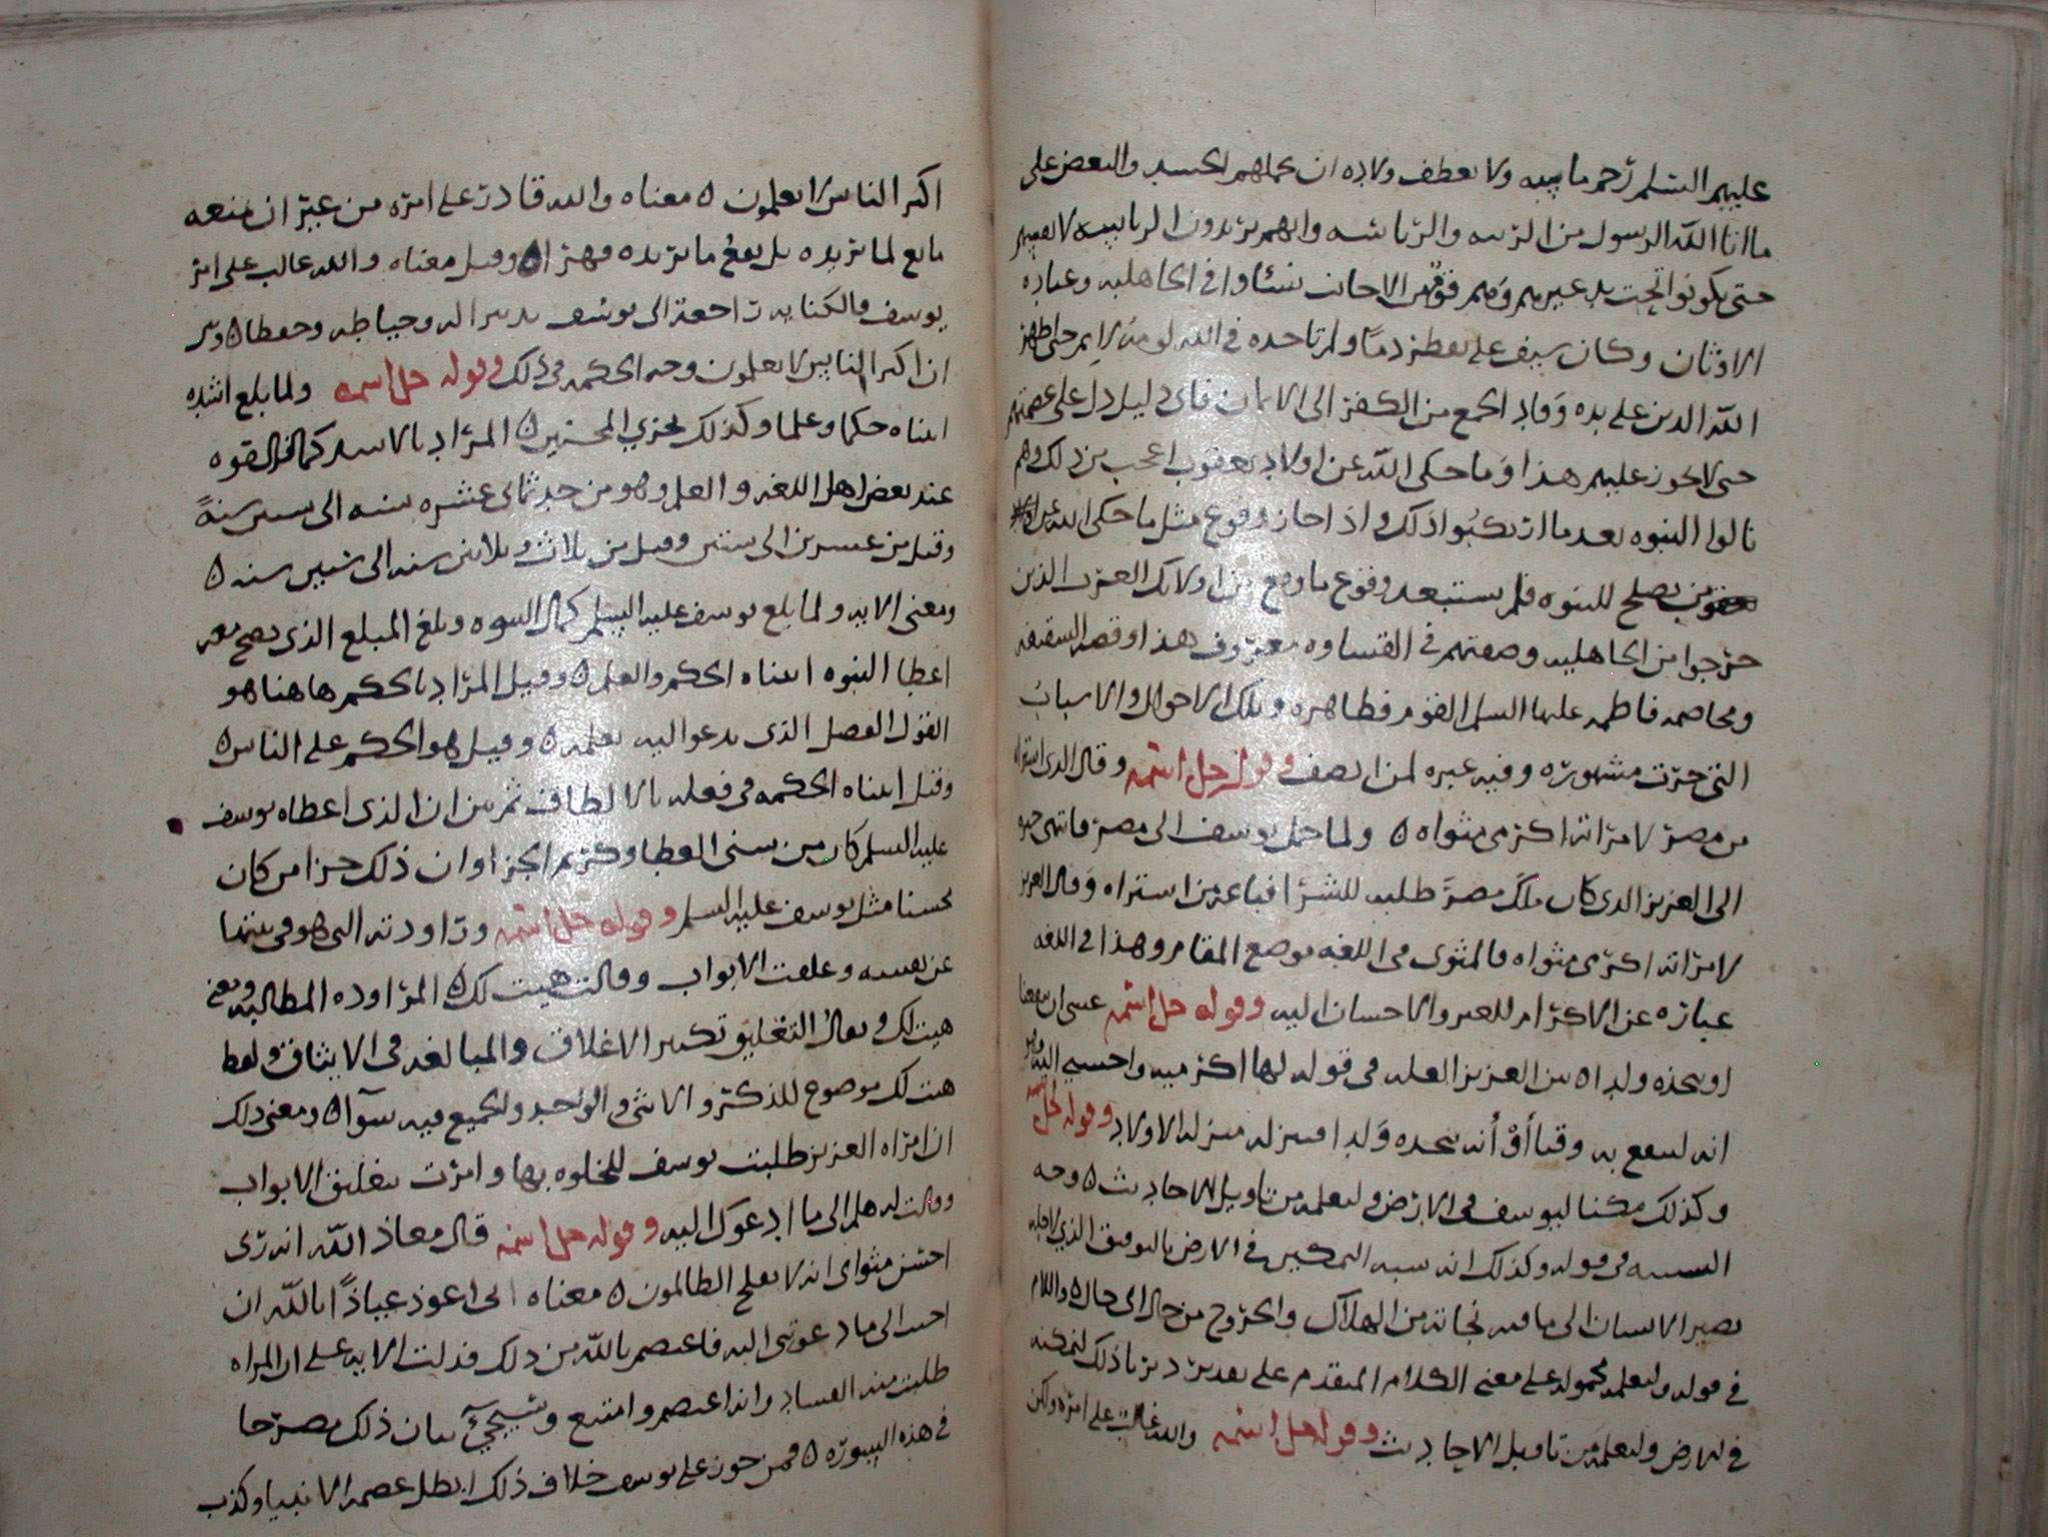 عليهم السلم رحم ماسه ولا تعطف ولاده ان حملهم الحسد والبغض على
ما اتا الله الرسول من الرتبه والرئاسه وانهم يريدون الرئاسه لانفسهم
حتى يكونوا تحت يد غيرهم ومنهم فوق من الاجانب نشاوا في الجاهليه وعباده
الاوثان وكان سيف علي يقطر دما ولم تاخده في الله لومه لايم حتى اظهر
الله الدين على يده وقاد الجمع من الكفر الى الايمان فاي دليل دل على عصمتهم
حتى لا يجوز عليهم هذا وما حكى الله عن اولاد يعقوب اعجب من ذلك وهم
نالوا النبوه بعد ما ارتكبوا ذلك واذا جاز وقوع مثل ما حكى الله عن
يصلح للنبوه فلم يستبعد وقوع ما وقع من اولائك العرب الذين
خرجوا من الجاهليه وصفتهم في القساوه معروف هذا وقصه السقيفه
ومخاصمه فاطمه عليها السلم القوم فظاهره وتلك الاحوال والاسباب
التي جرت مشهوره وفيه عبره لمن انصف وقوله جل اسمه وقال الذي اشتراه
من مصر لامراته اكرمي مثواه ه ولما حمل يوسف الى مصر فانتهى خبره
الى العزيز الذي كان ملك مصر طلبه للشرا فباعه من استراه وقال العزيز
لامراته اكرمي مثواه فالمثوى في اللغه موضع المقام وهذا في اللغه
عباره عن الاكرام للغير والاحسان اليه وقوله جل اسمه عسى ان ينفعنا
او نتخذه ولدا ه بين العزيز العله في قوله لها اكرميه واحسني اليه
انه لينفع به وقتا أوْ أنه يتخده وَلدا فينزله منزله الاولاد وقوله جل اسمه
وكذلك مكنا ليوسف في الارض ولنعلمه من تاويل الاحاديث ه وجه
التشبيه في قوله وكذلك انه شبه التمكين في الارض بالتوفيق الذي لاجله
يصير الانسان الى ما فيه نجاته من الهلاك والخروج من حال الى حال ه واللام
في قوله ولنعلمه محموله على معنى الكلام المتقدم على تقدير دبرنا ذلك لنمكنه
في الارض ولنعلمه من تاويل الاحاديث وقوله جل اسمه والله غالب على امره ولكن
اكثر الناس لا يعلمون ه معناه والله قادر على امره من غير ان يمنعه
مانع لما يريده بل يقع ما يريده قهرا ه وقيل معناه والله غالب على امر
يوسف فالكنايه راجعة الى يوسف يدبر اله وحياطه وحفظا ه وبين
ان اكثر الناس لا يعلمون وجه الحكمه في ذلك وقوله جل اسمه ولما بلغ اشده
اتيناه حكما وعلما وكذلك نجزي المحسنين ه المراد بالاشد كمال القوه
عند بعض اهل اللغه والعلم وهو من حد ثماني عشره سنه الى ستين سنةً
وقيل من عشرين الى ستين وقيل من ثلاث وثلاثين سنه الى ستين سنه ه
ومعنى الايه ولما بلغ يوسف عليه السلم كمال النبوه وبلغ المبلغ الذي يصح معه
اعطا النبوه اتيناه الحكم والعلم ه وقيل المراد بالحكم هاهنا هو
القول الفصل الذي يدعو اليه بعلمه ه وقيل هو الحكم على الناس ه
وقيل اتيناه الحكمه في فعله بالالطاف ثم بين ان الذي اعطاه يوسف
عليه السلم كان من سني العطا وكريم الجزا وان ذلك جزا من كان
محسنا مثل يوسف عليه السلم وقوله جل اسمه وراودته التي هو في بيتها
عن نفسه وغلقت الابواب وقالت هيت لك ه المراوده المطالبه ومعنى
هيت لك وتعال التغليق تكثير الاغلاق والمبالغه في الايثاق ولفظ
هيت لك موضوع للذكر والانثى والواحد والجميع فيه سوآ ه ومعنى ذلك
ان امراه العزيز طلبت يوسف للخلوه بها وامرت بتغليق الابواب
وقالت له هلم الى ما ادعوك اليه وقوله جل اسمه قال معاذ الله انه ربى
احسن مثواي انه لا يفلح الظالمون ه معناه انى اعوذ عياذًا بالله ان
اجيب الى ما دعوتني اليه فاعتصم بالله من ذلك فدلت الايه على ان المراه
طلبت منه الفساد وانه اعتصم وامتنع وسيجيئ بيان ذلك مصرحا
في هذه السوره ه فمن جوز على يوسف خلاف ذلك ابطل عصمه الانبيا وكذب